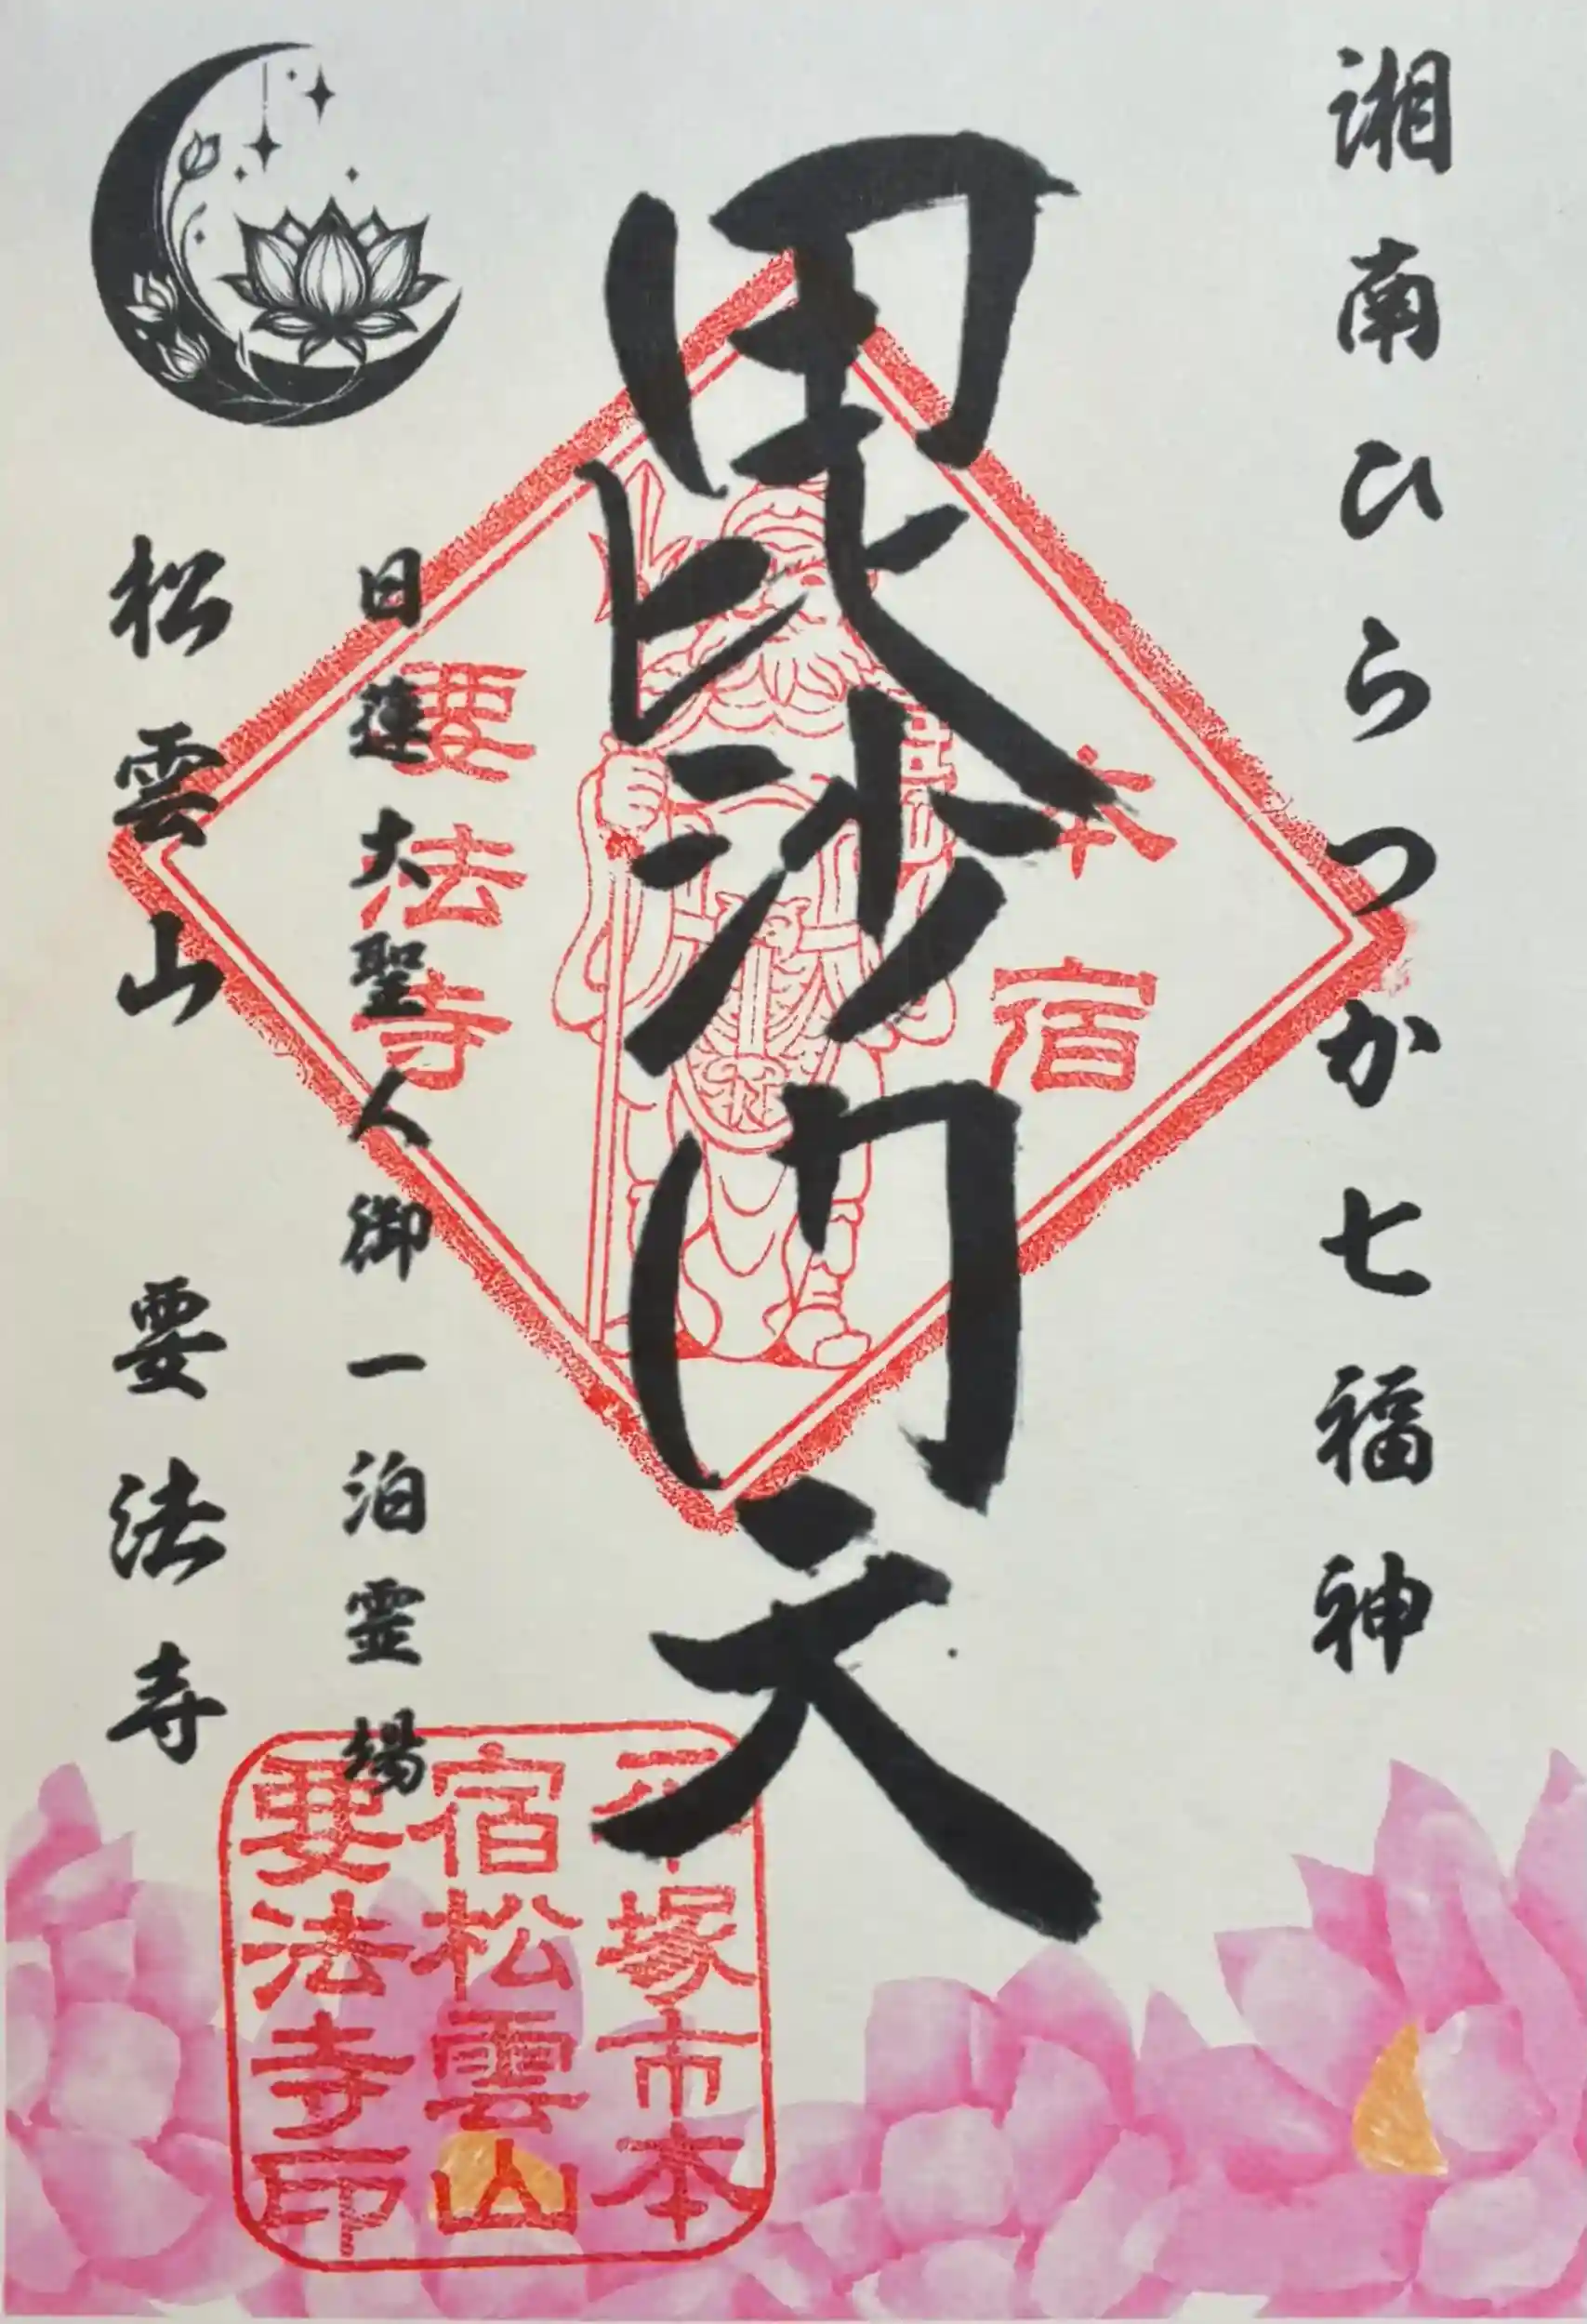 湘南ひらつか七福神
毘沙門天
本宿
要法寺
日蓮大聖人御一泊霊場
松雲山 要法寺
平塚市本
宿松雲山
要法寺印